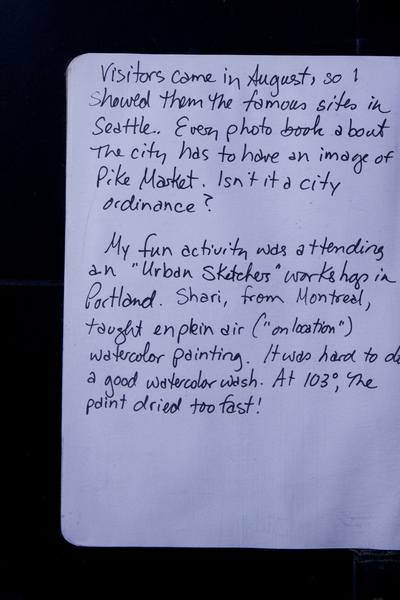 Visitors came in August, so I
showed them the famous sites in
Seattle. Every photo book about
the city has to have an image of
Pike Market. Isn't it a city
ordinance?
My fun activity was attending
an "Urban Sketchers" workshop in
Portland. Shari, from Montreal,
taught en plein air ("on location")
watercolor painting. It was hard to do
a good watercolor wash. At 103°, the
paint dried too fast!